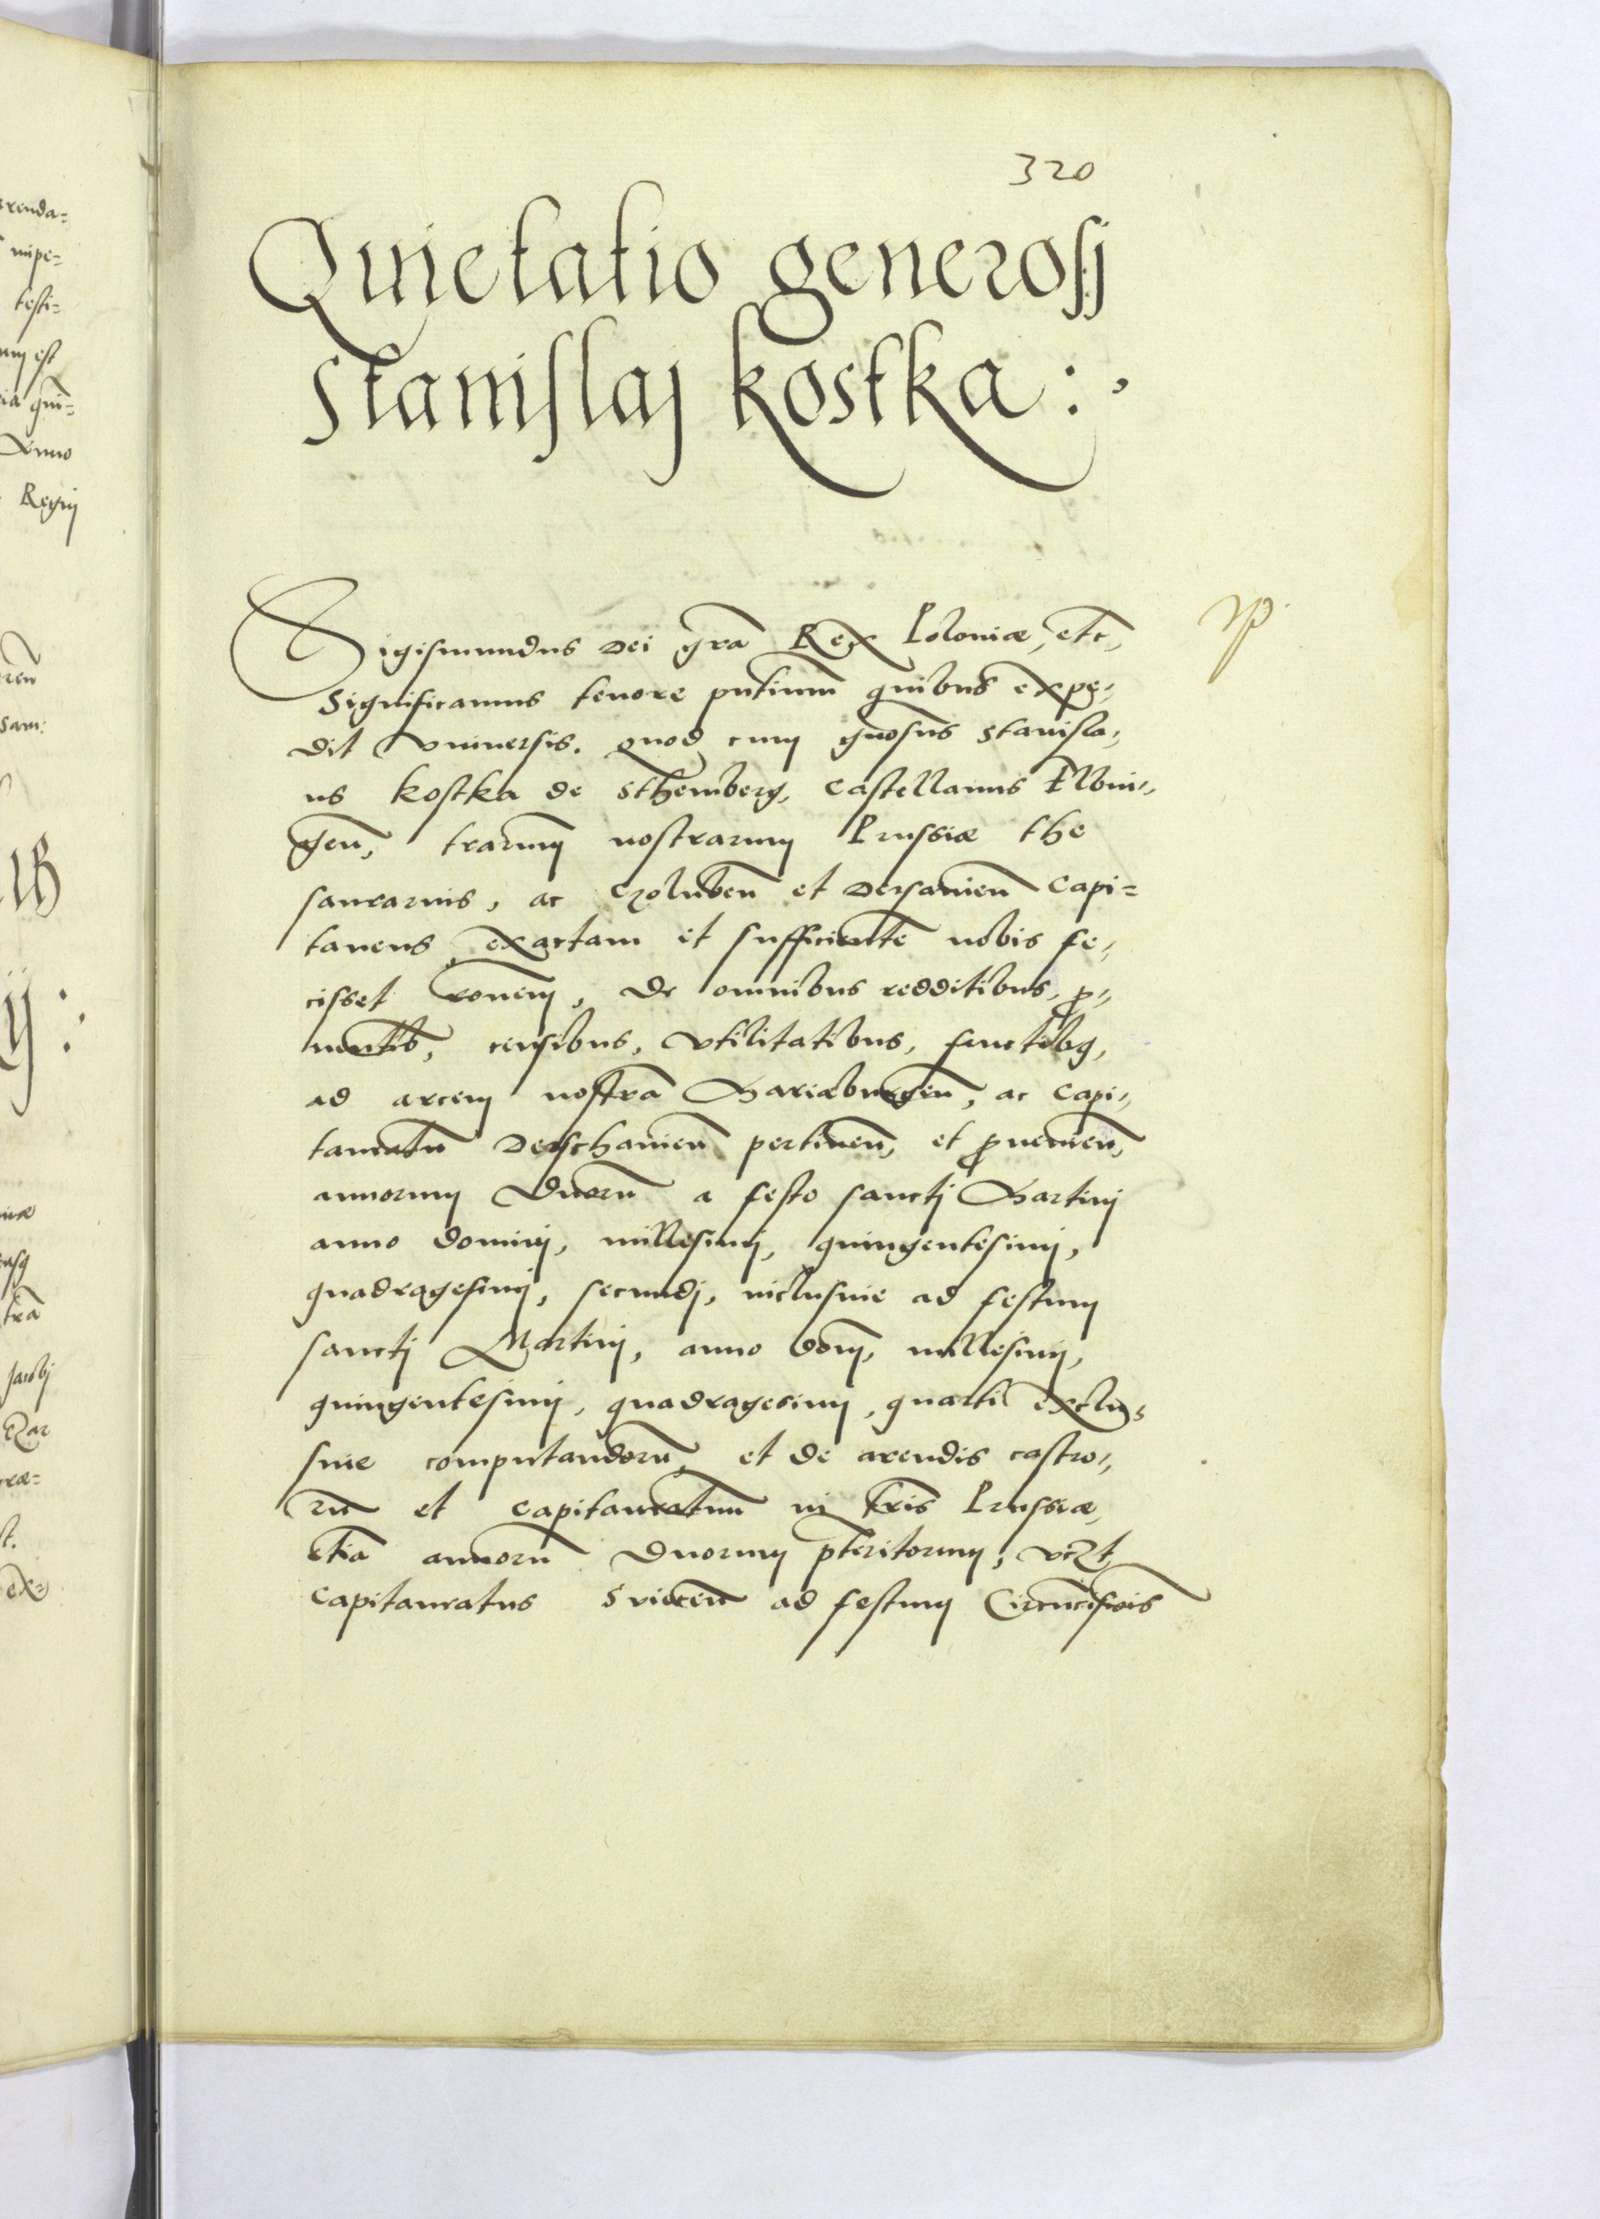 320
Quietatio generosj
Stanislaj kostka :,
Sigismundus Dei gra͞ Rex Poloniæ, etc,
Significamus tenore pntium͞ quibus expe,
dit Vniuersis. quod cum gn͞osus Stanisla,
us kostka de Sthemberg, Castellanus Elbin,
gen͞, trarum nostrarum Prussiæ the
saurarius, ac Czoluben͞ et Dersanien͞ Capi=
taneus exactam et sufficiente͞ nobis fe,
cisset ronem, De omnibus redditibus, p,
uentib͞, censibus, Vtilitatibus, fructibq,
ad arcem nostra͞ Mariæburgen͞, ac Capi,
taneatu͞ Derschanien͞ pertinen͞, et prouenien͞,
annorum Duoru͞ a festo sanctj Martinj
anno dominj, millesimj, quingentesimj,
quadragesimj, secundj, inclusiue ad festum
sanctj Martinj, anno domj, millesimj,
quingentesimj, quadragesimj, quarti exclu,
siue computandoru͞, et de arendis castro,
ru͞ et capitaneatuum in tris͞ Prussiæ,
etia͞ annoru͞ Duorum pteritorum, vczt,
Capitaneatus Sviecen͞ ad festum Circu͞cisiois
renda=
impe=
testi=
est
Anno
Regnj
sam:
tra͞
Jacobj
ex=